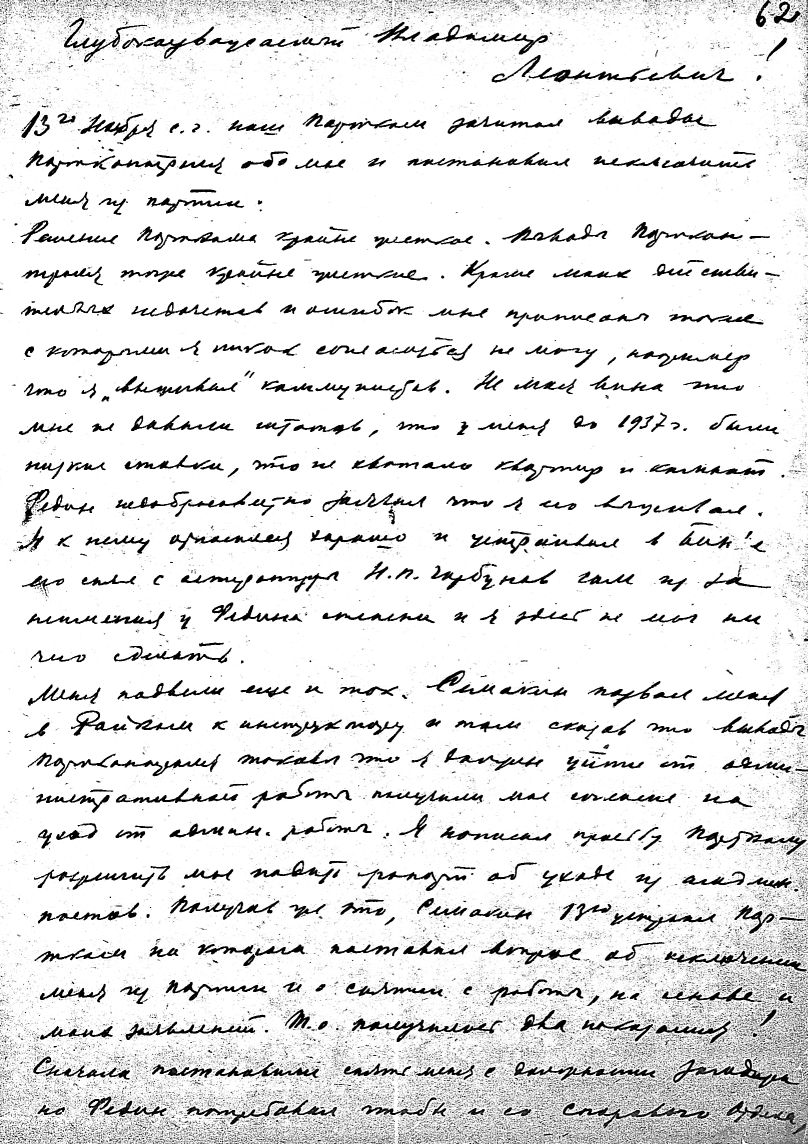 62
Глубокоуважаемый Владимир
Леонтьевич!
13го Ноября с.г. наш Партком зачитал выводы
Партконтроля обо мне и постановил исключить
меня из партии.
Решение Парткома крайне жесткое. Выводы Парткон-
троля тоже крайне жесткие. Кроме моих действи-
тельных недочетов и ошибок мне приписаны такие
с которыми я никак согласиться не могу, например
что я „выживал" коммунистов. Не моя вина что
мне не давали штатов, что у меня до 1937 г. были
низкие ставки, что не хватало квартир и комнат.
Федин недобросовестно заявил что я его выживал.
Я к нему относился хорошо и устраивал в Бин'е
его сняли с аспирантуры Н.П. Горбунов сам из за
неимения у Федина степени и я здесь не мог ни
чего сделать.
Меня подвели еще и так. Симакин позвал меня
в Райком к инструктору и там сказав что выводы
Партконтроля таковы что я должен уйти от адми-
нистративной работы получили мое согласие на
уход от админ. работы. Я написал просьбу Парткому
разрешить мне подать рапорт об уходе из админ.
постов. Получив же это, Симакин 13го устроил Пар-
тком на котором поставил вопрос об исключении
меня из партии и о снятии с работы, на основе и
моих заявлений. Т.о. получилось два наказания!
Сначала постановили снять меня с должности Замдира
но Федин потребовал чтобы и со Спорового отдела,